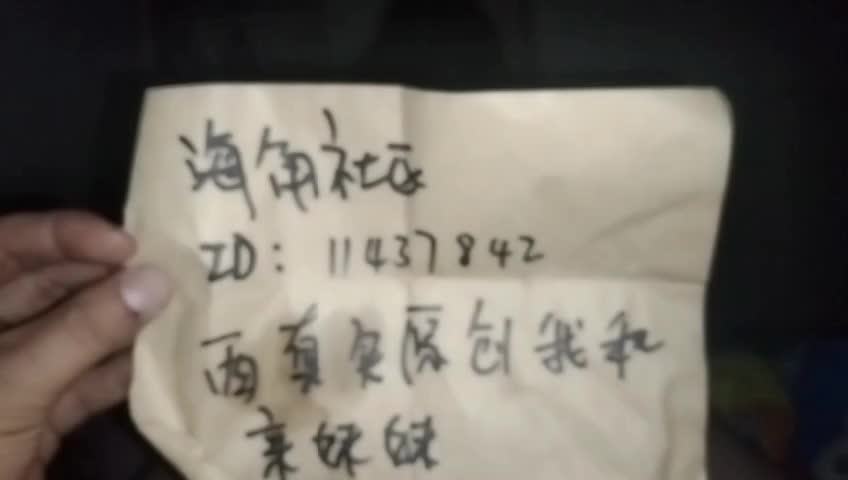 海角社区
ID: 11437842
真实原创我和
亲妹妹